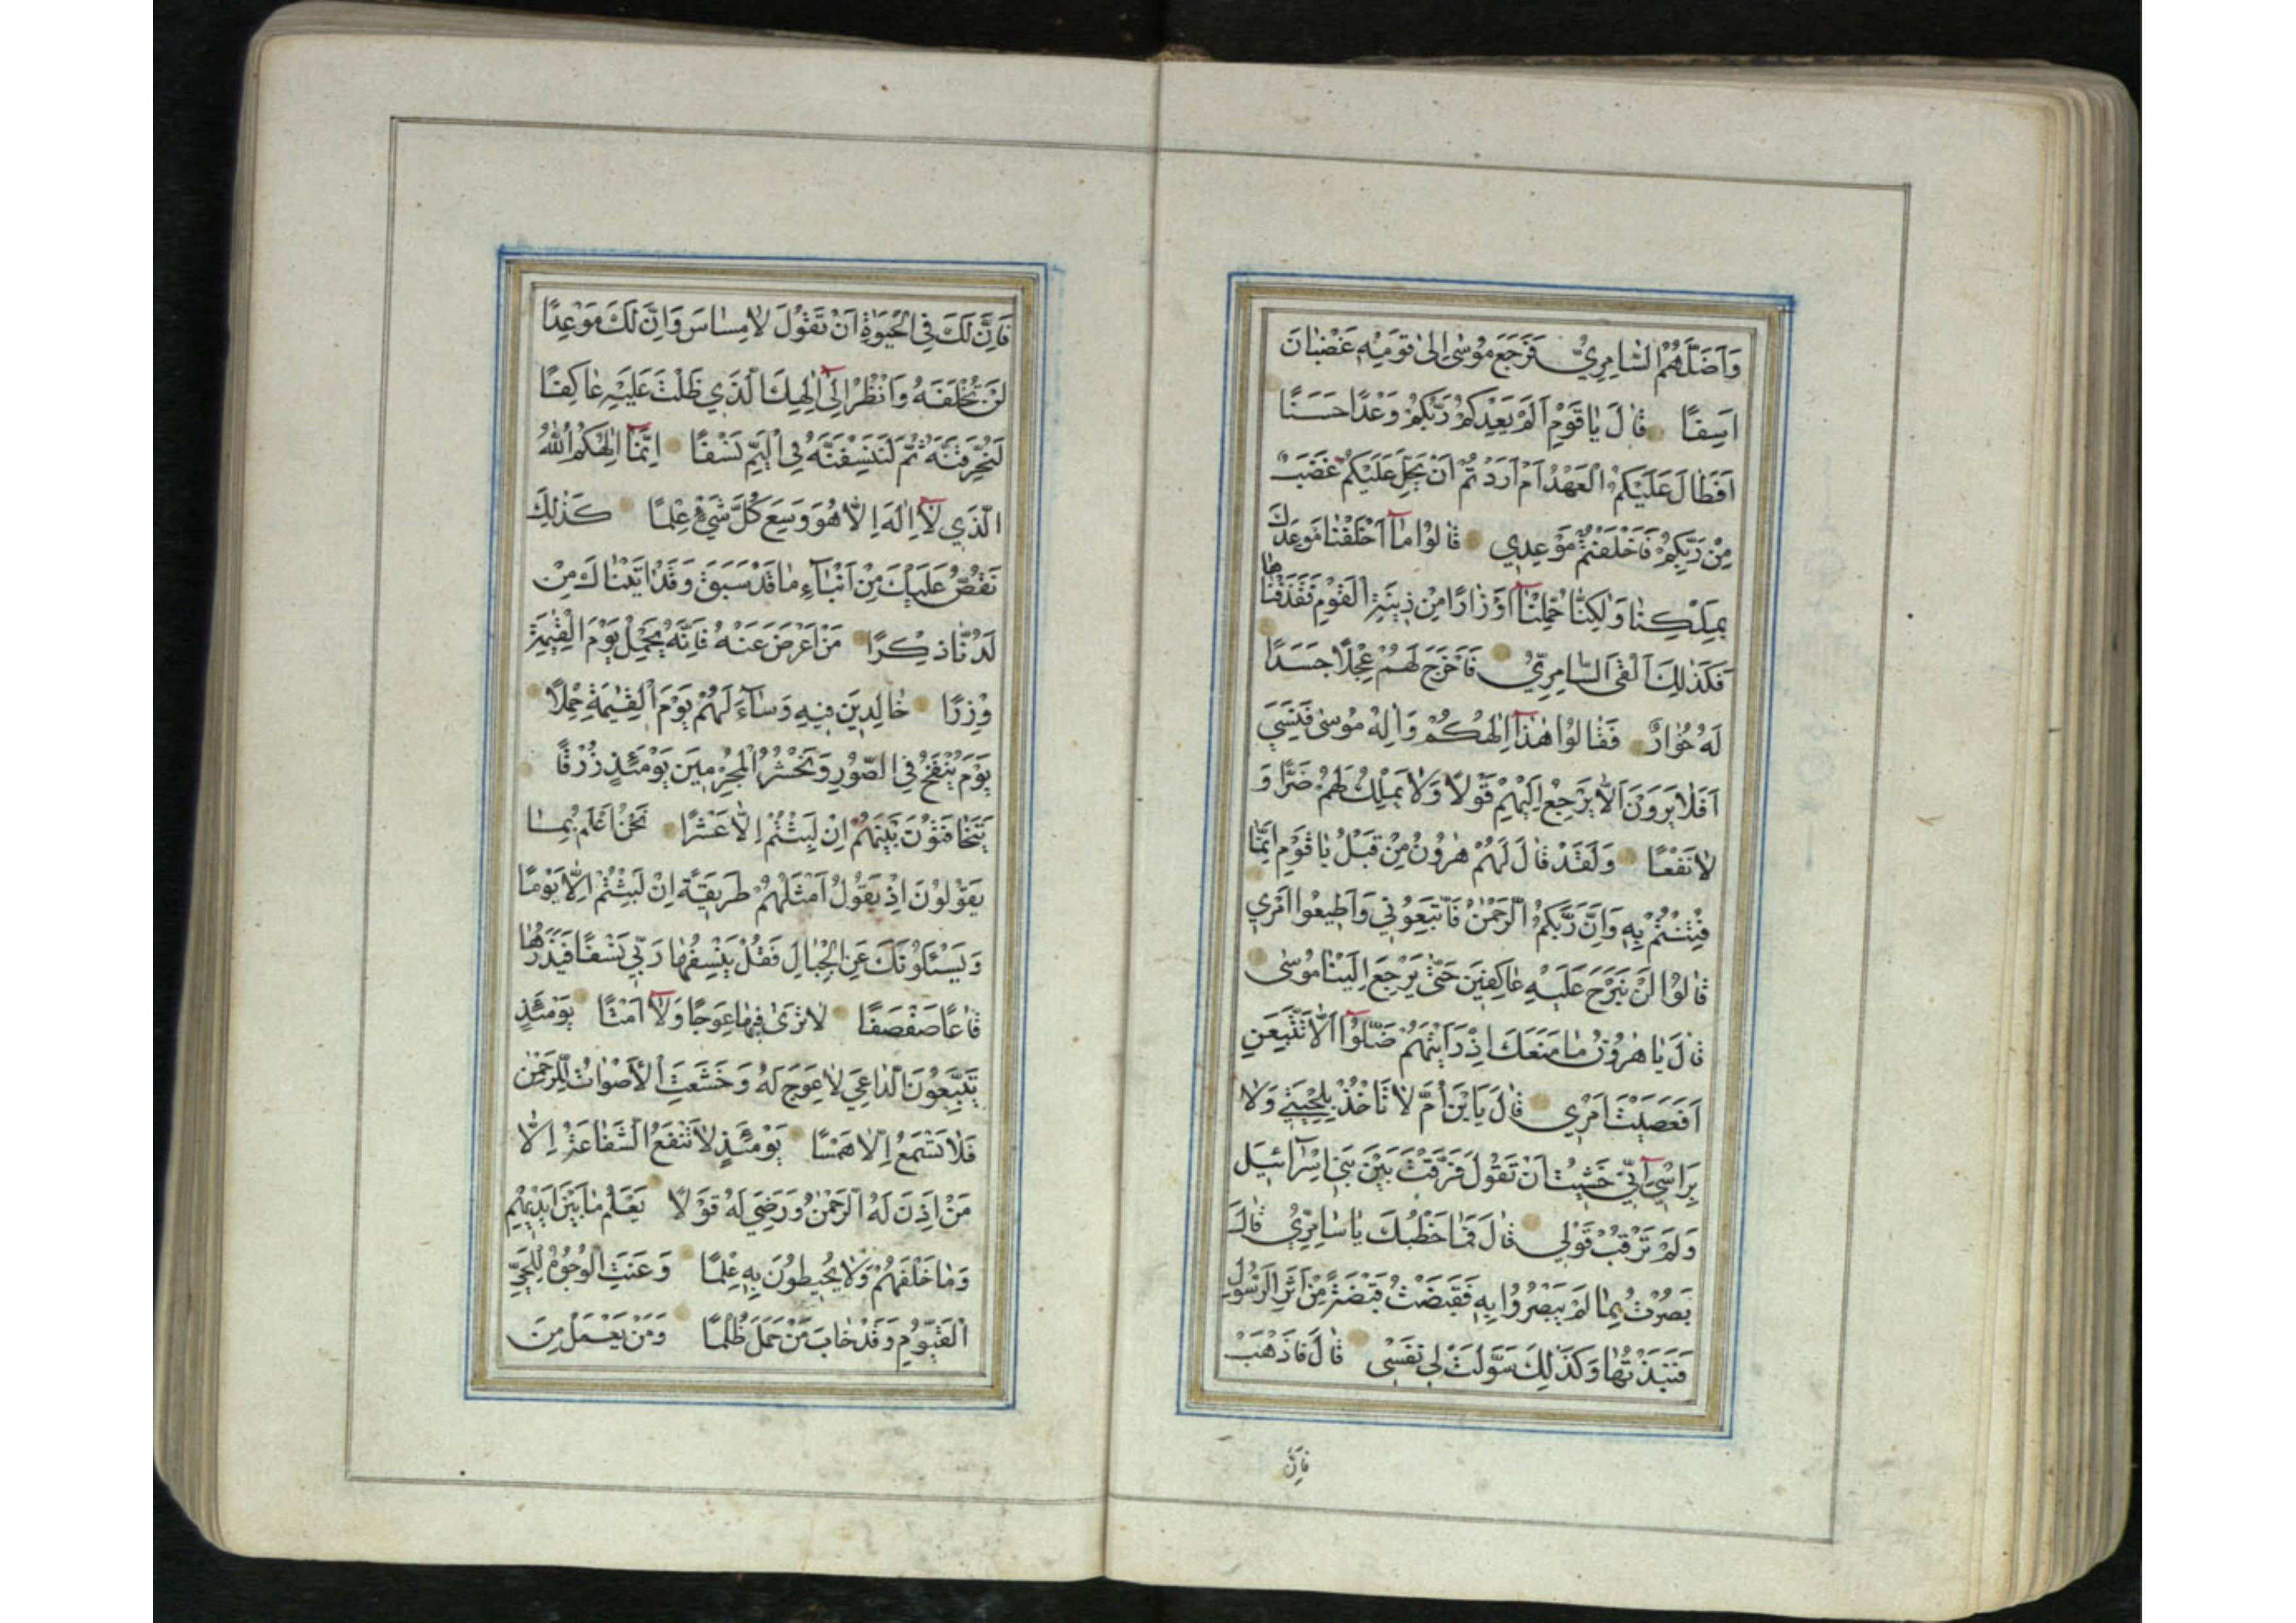 وَاَضَلَّهُمُ السَّامِرِيُّ فَرَجَعَ مُوسٰى اِلٰى قَوْمِهٖ غَضْبَانَ
اَسِفًا قَالَ يَا قَوْمِ اَلَمْ يَعِدْكُمْ رَبُّكُمْ وَعْدًا حَسَنًا
اَفَطَالَ عَلَيْكُمُ الْعَهْدُ اَمْ اَرَدْتُمْ اَنْ يَحِلَّ عَلَيْكُمْ غَضَبٌ
مِنْ رَبِّكُمْ فَاَخْلَفْتُمْ مَوْعِدِي قَالُوا مَآ اَخْلَفْنَا مَوْعِدَكَ
بِمَلْكِنَا وَلٰكِنَّا حُمِّلْنَآ اَوْزَارًا مِنْ زِينَةِ الْقَوْمِ فَقَذَفْنَاهَا
فَكَذٰلِكَ اَلْقَى السَّامِرِيُّ فَاَخْرَجَ لَهُمْ عِجْلًا جَسَدًا
لَهُ خُوَارٌ فَقَالُوا هٰذَآ اِلٰهُكُمْ وَاِلٰهُ مُوسٰى فَنَسِيَ
اَفَلَا يَرَوْنَ اَلَّا يَرْجِعُ اِلَيْهِمْ قَوْلًا وَلَا يَمْلِكُ لَهُمْ ضَرًّا وَ
لَا نَفْعًا وَلَقَدْ قَالَ لَهُمْ هٰرُونُ مِنْ قَبْلُ يَا قَوْمِ اِنَّمَا
فُتِنْتُمْ بِهٖ وَاِنَّ رَبَّكُمُ الرَّحْمٰنُ فَاتَّبِعُونِي وَاَطِيعُوا اَمْرِي
قَالُوا لَنْ نَبْرَحَ عَلَيْهِ عَاكِفِينَ حَتّٰى يَرْجِعَ اِلَيْنَا مُوسٰى
قَالَ يَا هٰرُونُ مَا مَنَعَكَ اِذْ رَاَيْتَهُمْ ضَلُّوٓا اَلَّا تَتَّبِعَنِ
اَفَعَصَيْتَ اَمْرِي قَالَ يَا ابْنَ اُمَّ لَا تَاْخُذْ بِلِحْيَتِي وَلَا
بِرَاْسِيٓ اِنِّي خَشِيتُ اَنْ تَقُولَ فَرَّقْتَ بَيْنَ بَنِيٓ اِسْرَآئِيلَ
وَلَمْ تَرْقُبْ قَوْلِي قَالَ فَمَا خَطْبُكَ يَا سَامِرِيُّ قَالَ
بَصُرْتُ بِمَا لَمْ يَبْصُرُوا بِهٖ فَقَبَضْتُ قَبْضَةً مِنْ اَثَرِ الرَّسُولِ
فَنَبَذْتُهَا وَكَذٰلِكَ سَوَّلَتْ لِي نَفْسِي قَالَ فَاذْهَبْ
فَاِنَّ
فَاِنَّ لَكَ فِي الْحَيٰوةِ اَنْ تَقُولَ لَا مِسَاسَ وَاِنَّ لَكَ مَوْعِدًا
لَنْ تُخْلَفَهُ وَانْظُرْ اِلٰٓى اِلٰهِكَ الَّذِي ظَلْتَ عَلَيْهِ عَاكِفًا
لَنُحَرِّقَنَّهُ ثُمَّ لَنَنْسِفَنَّهُ فِي الْيَمِّ نَسْفًا اِنَّمَآ اِلٰهُكُمُ اللّٰهُ
الَّذِي لَآ اِلٰهَ اِلَّا هُوَ وَسِعَ كُلَّ شَيْءٍ عِلْمًا كَذٰلِكَ
نَقُصُّ عَلَيْكَ مِنْ اَنْبَآءِ مَا قَدْ سَبَقَ وَقَدْ اٰتَيْنَاكَ مِنْ
لَدُنَّا ذِكْرًا مَنْ اَعْرَضَ عَنْهُ فَاِنَّهُ يَحْمِلُ يَوْمَ الْقِيٰمَةِ
وِزْرًا خَالِدِينَ فِيهِ وَسَآءَ لَهُمْ يَوْمَ الْقِيٰمَةِ حِمْلًا
يَوْمَ يُنْفَخُ فِي الصُّورِ وَنَحْشُرُ الْمُجْرِمِينَ يَوْمَئِذٍ زُرْقًا
يَتَخَافَتُونَ بَيْنَهُمْ اِنْ لَبِثْتُمْ اِلَّا عَشْرًا نَحْنُ اَعْلَمُ بِمَا
يَقُولُونَ اِذْ يَقُولُ اَمْثَلُهُمْ طَرِيقَةً اِنْ لَبِثْتُمْ اِلَّا يَوْمًا
وَيَسْئَلُونَكَ عَنِ الْجِبَالِ فَقُلْ يَنْسِفُهَا رَبِّي نَسْفًا فَيَذَرُهَا
قَاعًا صَفْصَفًا لَا تَرٰى فِيهَا عِوَجًا وَلَآ اَمْتًا يَوْمَئِذٍ
يَتَّبِعُونَ الدَّاعِيَ لَا عِوَجَ لَهُ وَخَشَعَتِ الْاَصْوَاتُ لِلرَّحْمٰنِ
فَلَا تَسْمَعُ اِلَّا هَمْسًا يَوْمَئِذٍ لَا تَنْفَعُ الشَّفَاعَةُ اِلَّا
مَنْ اَذِنَ لَهُ الرَّحْمٰنُ وَرَضِيَ لَهُ قَوْلًا يَعْلَمُ مَا بَيْنَ اَيْدِيهِمْ
وَمَا خَلْفَهُمْ وَلَا يُحِيطُونَ بِهٖ عِلْمًا وَعَنَتِ الْوُجُوهُ لِلْحَيِّ
الْقَيُّومِ وَقَدْ خَابَ مَنْ حَمَلَ ظُلْمًا وَمَنْ يَعْمَلْ مِنَ